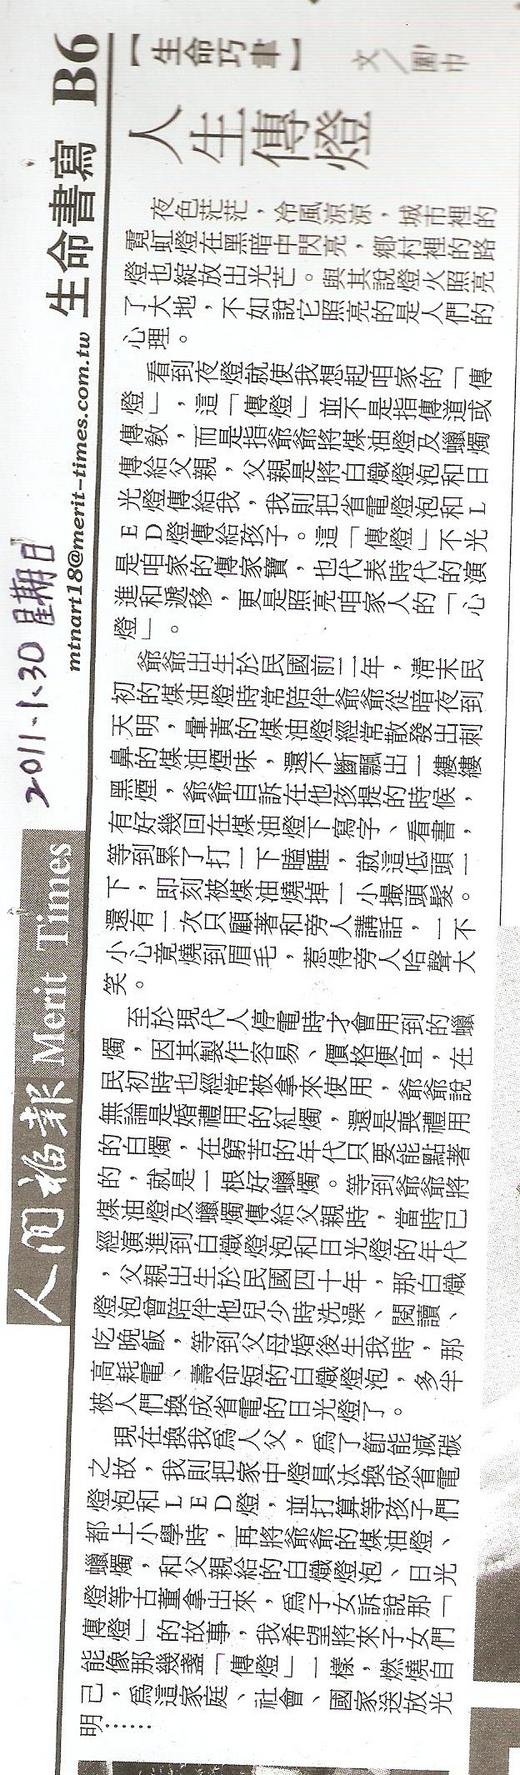 人間福報 Merit Times
2011.1.30 星期日
mtnart18@merit-times.com.tw
生命書寫 B6
【生命巧筆】
人生傳燈
文／圃巾
夜色茫茫，冷風涼涼，城市裡的
霓虹燈在黑暗中閃亮，鄉村裡的路
燈也綻放出光芒。與其說燈火照亮
了大地，不如說它照亮的是人們的
心理。
看到夜燈就使我想起咱家的「傳
燈」，這「傳燈」並不是指傳道或
傳教，而是指爺爺將煤油燈及蠟燭
傳給父親，父親是將白熾燈泡和日
光燈傳給我，我則把省電燈泡和L
ED燈傳給孩子。這「傳燈」不光
是咱家的傳家寶，也代表時代的演
進和遞移，更是照亮咱家人的「心
燈」。
爺爺出生於民國前二年，清末民
初的煤油燈時常陪伴爺爺從暗夜到
天明，暈黃的煤油燈經常散發出刺
鼻的煤油煙味，還不斷飄出一縷縷
黑煙，爺爺自訴在他孩提的時候，
有好幾回在煤油燈下寫字、看書，
等到累了打一下瞌睡，就這低頭一
下，即刻被煤油燒掉一小撮頭髮。
還有一次只顧著和旁人講話，一不
小心竟燒到眉毛，惹得旁人哈聲大
笑。
至於現代人停電時才會用到的蠟
燭，因其製作容易、價格便宜，在
民初時也經常被拿來使用，爺爺說
無論是婚禮用的紅燭，還是喪禮用
的白燭，在窮苦的年代只要能點著
的，就是一根好蠟燭。等到爺爺將
煤油燈及蠟燭傳給父親時，當時已
經演進到白熾燈泡和日光燈的年代
，父親出生於民國四十年，那白熾
燈泡曾陪伴他兒少時洗澡、閱讀、
吃晚飯，等到父母婚後生我時，那
高耗電、壽命短的白熾燈泡，多半
被人們換成省電的日光燈了。
現在換我為人父，為了節能減碳
之故，我則把家中燈具汰換成省電
燈泡和LED燈，並打算等孩子們
都上小學時，再將爺爺的煤油燈、
蠟燭，和父親給的白熾燈泡、日光
燈等古董拿出來，為子女訴說那「
傳燈」的故事，我希望將來子女們
能像那幾盞「傳燈」一樣，燃燒自
己，為這家庭、社會、國家送放光
明……